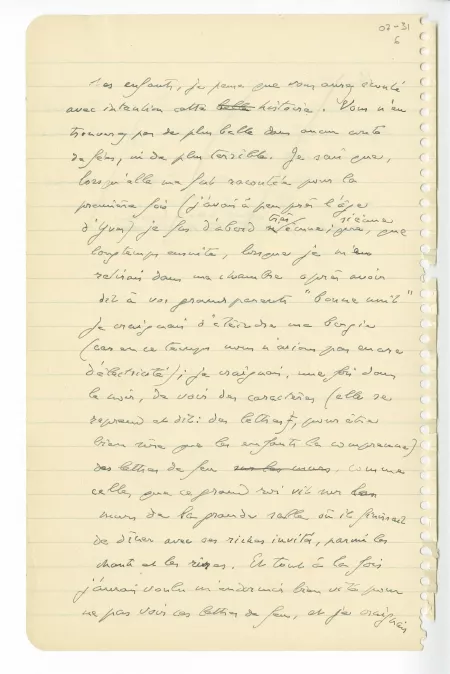 07-31
6
mes enfants, je pense que vous aurez écouté
avec attention cette belle histoire. Vous n'en
trouverez pas de plus belle dans aucun conte
de fées, ni de plus terrible. Je sais que,
lorsqu'elle me fut racontée pour la
première fois (j'avais à peu près l'âge
d'Yvon) je fus d'abord très, que
longtemps ensuite, lorsque je m'en
retirais dans ma chambre après avoir
dit à vos grands parents "bonne nuit"
je craignais d'éteindre ma bougie
(car en ce temps nous n'avions pas encore
d'électricité); je craignais, une fois dans
le noir, de voir des caractères (elle se
reprend et dit: des lettres, pour être
bien sûre que les enfants la comprenne)
des lettres de feu sur les murs. comme
celles que ce grand roi vit sur les
murs de la grande salle où il finissait
de dîner avec ses riches invités, parmi les
chants et les rires. Et tout à la fois
j'aurais voulu m'endormir bien vite pour
ne pas voir ces lettres de feu, et je craignais